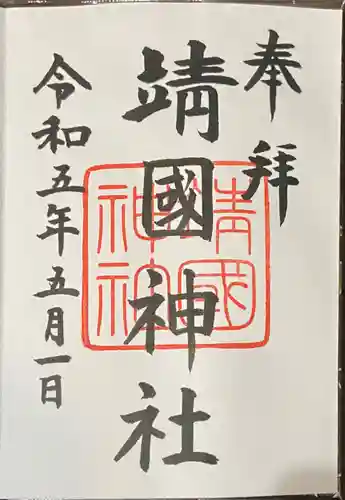 奉拝
靖國神社
靖國
神社
令和五年五月一日